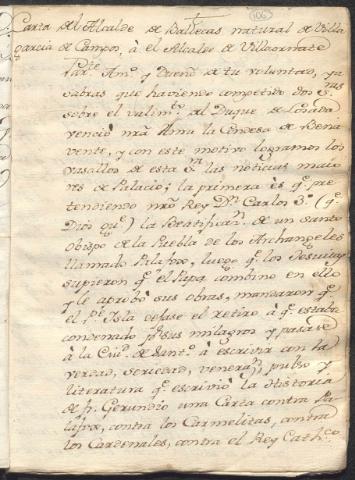 106
Carta del Alcalde de Ballecas natural de Villa
garcia de Campos, à el Alcalde de Villaornate
Amº y Dueño de tu voluntad, ya
sabras que haviendo competido dos Sras
sobre el valimto del Duque de Losada
venció nrã Ama la Condesa de Bena
vente, y con este motivo logramos los
vasallos de esta Sra las noticias maio
res de Palacio; la primera es qe pre
tendiendo nrõ Rey Dn Carlos 3º (qe
Dios gue) la Beatificaon de un santo
obispo de la Puebla de los Archangeles
llamado Palafox, luego qe los Jesuitas
supieron qe el Papa combino en ello
y le aprobó sus obras, mandaron qe
el Pe Isla dejase el retiro à qe estaba
condenado pr sus milagros y pasase
à la Ciud de Santo à escrivir con la
verdad, seriedad, veneraon, pulso y
literatura qe escrivió la Historia
de fr. Gerundio una Carta contra Pa
lafox, contra los Carmelitas, contra
los Cardenales, contra el Rey Cathco